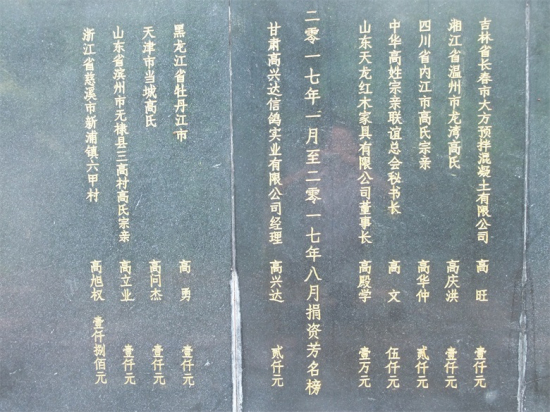 吉林省长春市大方预拌混凝土有限公司 高旺 壹仟元
湘江省温州市龙湾高氏 高庆洪 壹仟元
四川省内江市高氏宗亲 高华仲 贰仟元
中华高姓宗亲联谊总会秘书长 高文 伍仟元
山东天龙红木家具有限公司董事长 高殿学 壹万元
二零一七年一月至二零一七年八月捐资芳名榜
甘肃高兴达信鸽实业有限公司经理 高兴达 贰仟元
黑龙江省牡丹江市 高勇 壹仟元
天津市当城高氏 高问杰 壹仟元
山东省滨州市无棣县三高村高氏宗亲 高立业 壹仟元
浙江省慈溪市新浦镇六甲村 高旭权 壹仟捌佰元